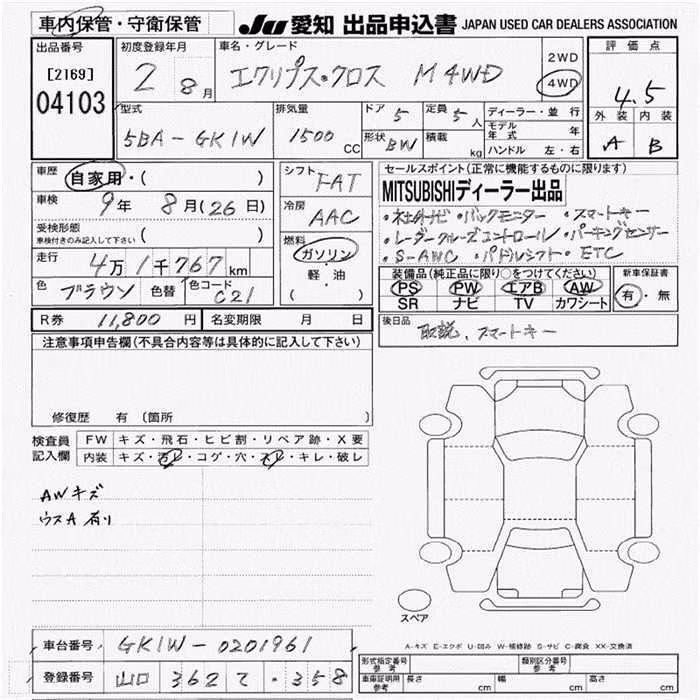 車内保管・守衛保管
JU 愛知 出品申込書 JAPAN USED CAR DEALERS ASSOCIATION
出品番号 初度登録年月 車名・グレード 評価点
[2169] 2 8月 エクリプス・クロス M 4WD 2WD
04103 4WD 4.5
型式 排気量 ドア 5 定員 5人 ディーラー・並行 外装 内装
5BA-GK1W 1500 CC 形状 BW 積載 kg モデル年式 年 A B
ハンドル 左・右
車歴 自家用・( ) シフト FAT セールスポイント(正常に機能するものに限ります)
車検 9年 8月(26日) 冷房 AAC MITSUBISHIディーラー出品
・社外ナビ ・バックモニター ・スマートキー
受検形態 ・レーダークルーズコントロール ・パーキングセンサー
車検付きのみ記入して下さい ( ) 燃料 ・S-AWC ・パドルシフト ・ETC
走行 4万1千767km ガソリン 装備品(純正品に限り○をつけてください) 新車保証書
軽・油 PS PW エアB AW 有・無
色 ブラウン 色替 色コード C21 ( ) SR ナビ TV カワシート
R券 11,800円 名変期限 月 日 後日品
取説、スマートキー
注意事項申告欄(不具合内容等は具体的に記入して下さい)
修復歴 有 (箇所
検査員 FW キズ・飛石・ヒビ割・リペア跡・X要
記入欄 内装 キズ・汚レ・コゲ・穴・スレ・キレ・破レ
AWキズ
ウスA 有り
スペア
車台番号 GK1W-0201961
A-キズ E-エクボ U-凹み W-補修跡 S-サビ C-腐食 XX-交換済
登録番号 山口 362 て・358
形式指定番号 参考 類別区分番号 参考
車庫証明用 参考 長さ cm 幅 cm 高さ cm